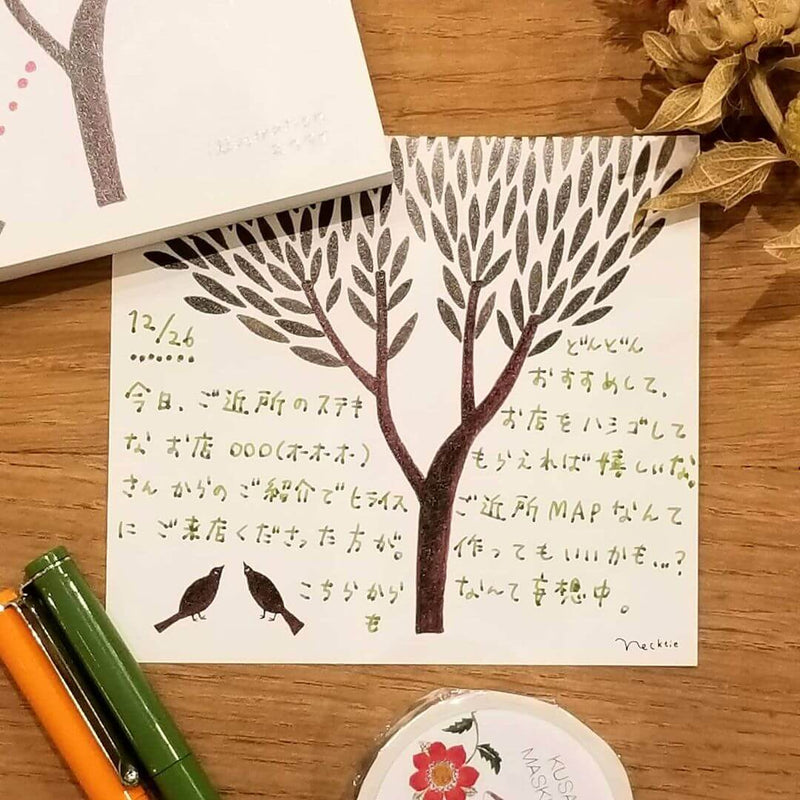 12/26
今日、ご近所のステキ
な お店 OOO(オーオーオー)
さんからのご紹介でヒライス
に ご来店くださった方が。
こちらから
も
どんどん
おすすめして、
お店をハシゴして
もらえれば嬉しいな。
ご近所MAPなんて
作ってもいいかも...?
なんて妄想中。
Necktie
KUSA
MASK